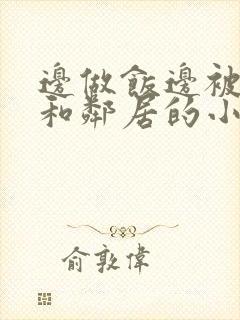 邊做飯邊被
和鄰居的小
俞敦偉